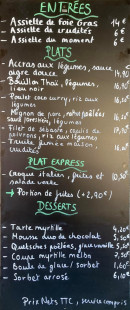 ENTRÉES
- Assiette de foie Gras 14 €
- Assiette de crudités 6 €
- Assiette du moment 6 €
PLATS
- Accras aux légumes, sauce
aigre douce 14,90
- Bouillon Thaï, légumes,
riz noir
- Poulet coco curry, riz aux
légumes
- Mignon de porc,
légumes
- Filet de sébaste,
poivrons, riz aux légumes
- maison,
crudités
PLAT EXPRESS
- Croque italien, frites et
salade verte 10,50
→ Portion de frites (+2,90€)
DESSERTS
- Tarte myrtille 4,20
- Mousse duo de chocolat 5,50
- Quetsches poêlées, glace vanille
- Coupe myrtille melba 7,50
- Boule de glace / sorbet 1,60
- Sorbet arrosé 6,10
Prix Nets TTC, service compris